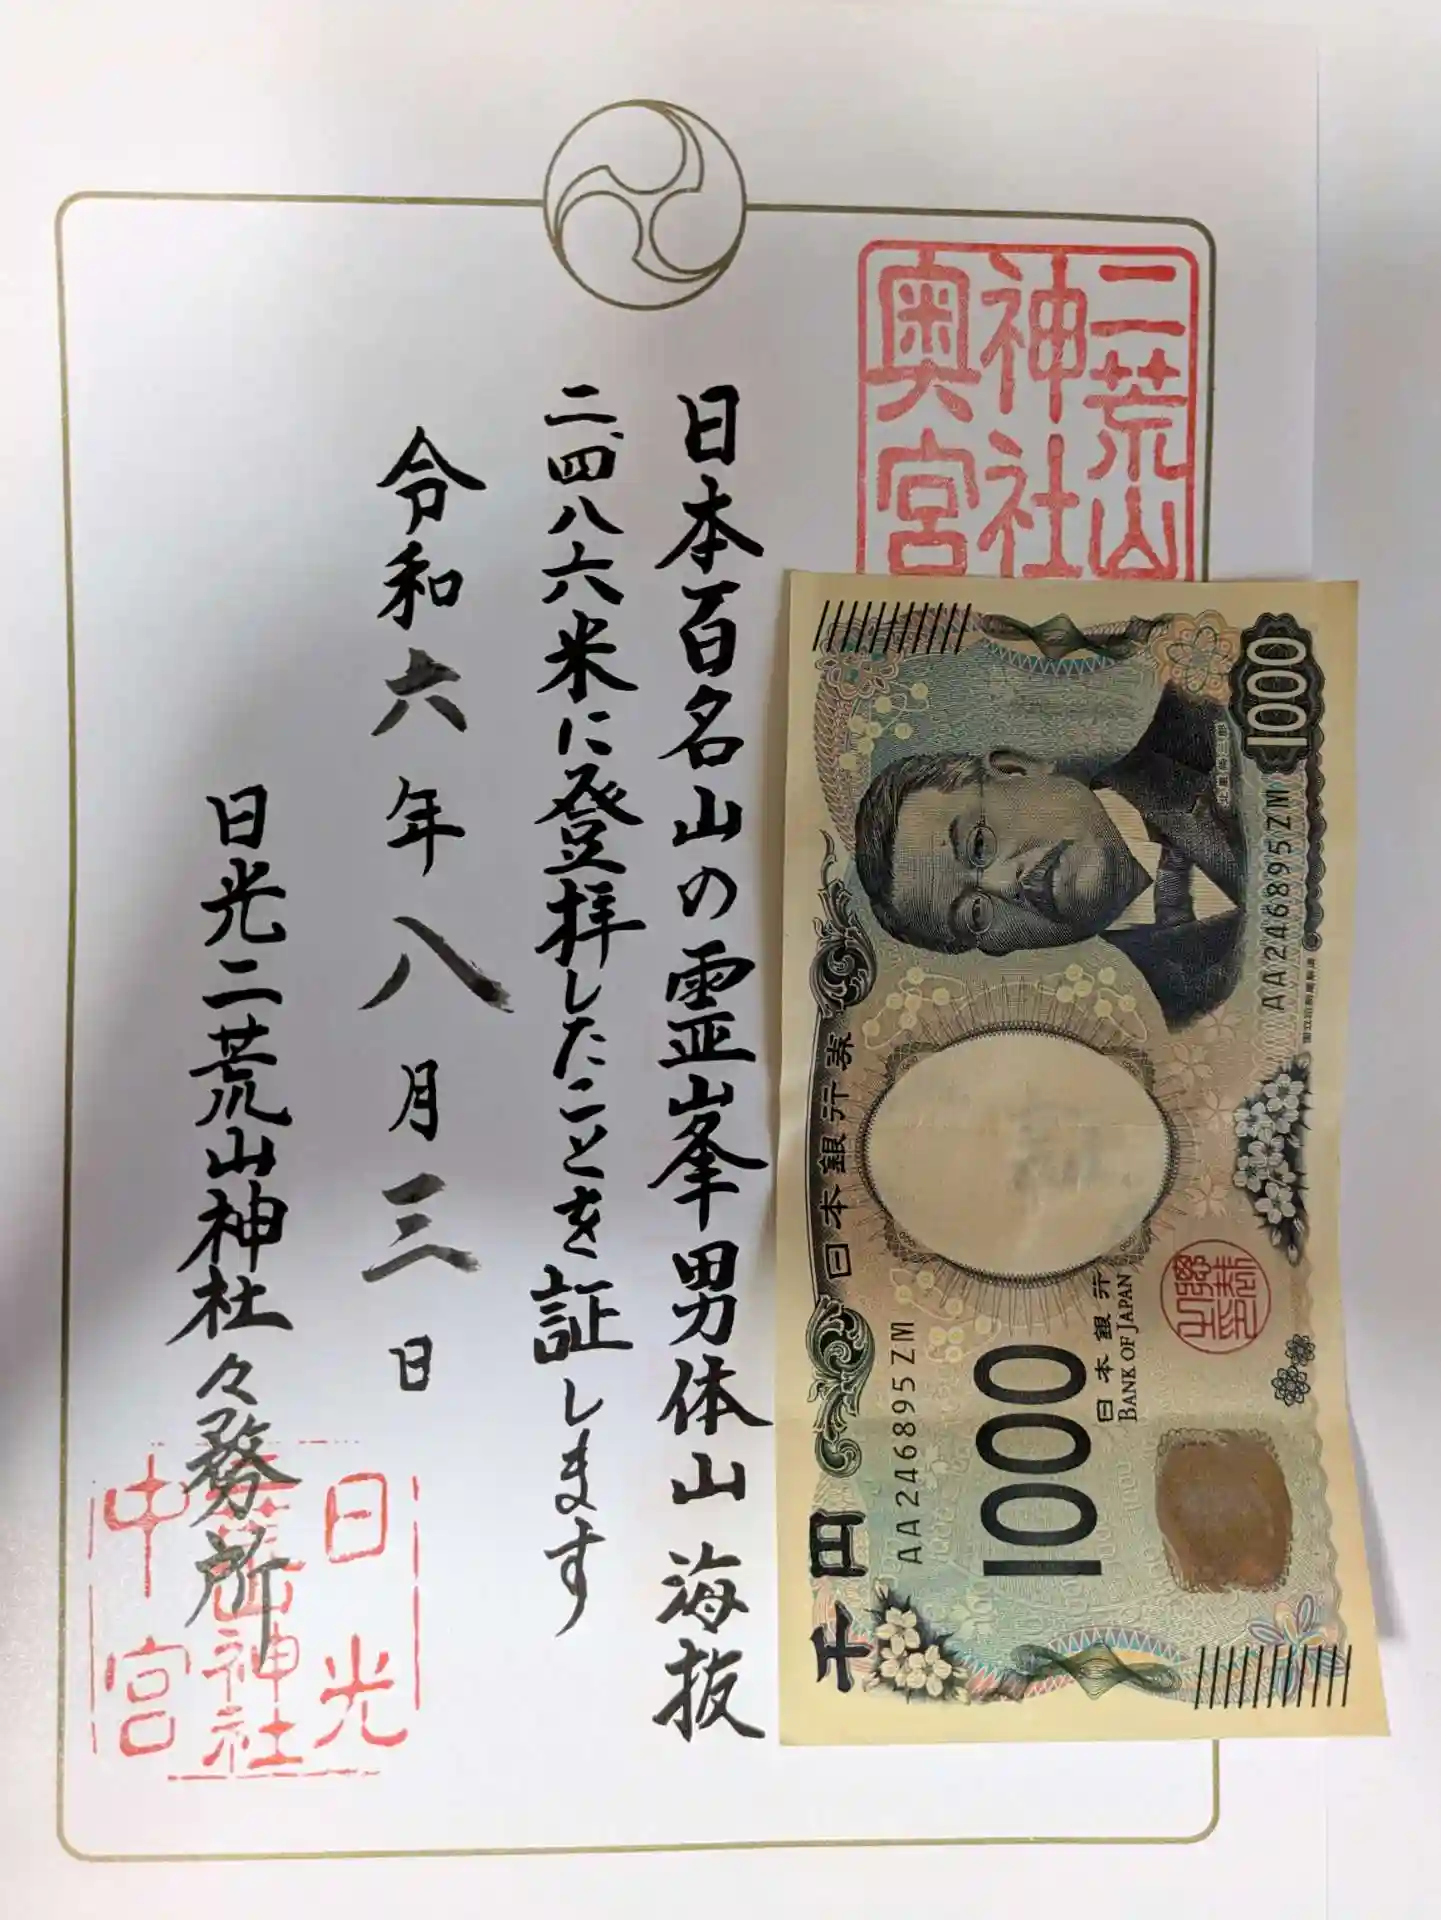 二荒山
神社
奥宮
日本百名山の霊峯男体山 海抜
二、四八六米に登拝したことを証します
令和六年八月三日
日光二荒山神社々務所
日光
二荒山神社
中宮
1000
北里柴三郎
AA246895ZM
国立印刷局製造
日本銀行券
日本銀行
BANK OF JAPAN
1000
AA246895ZM
千円